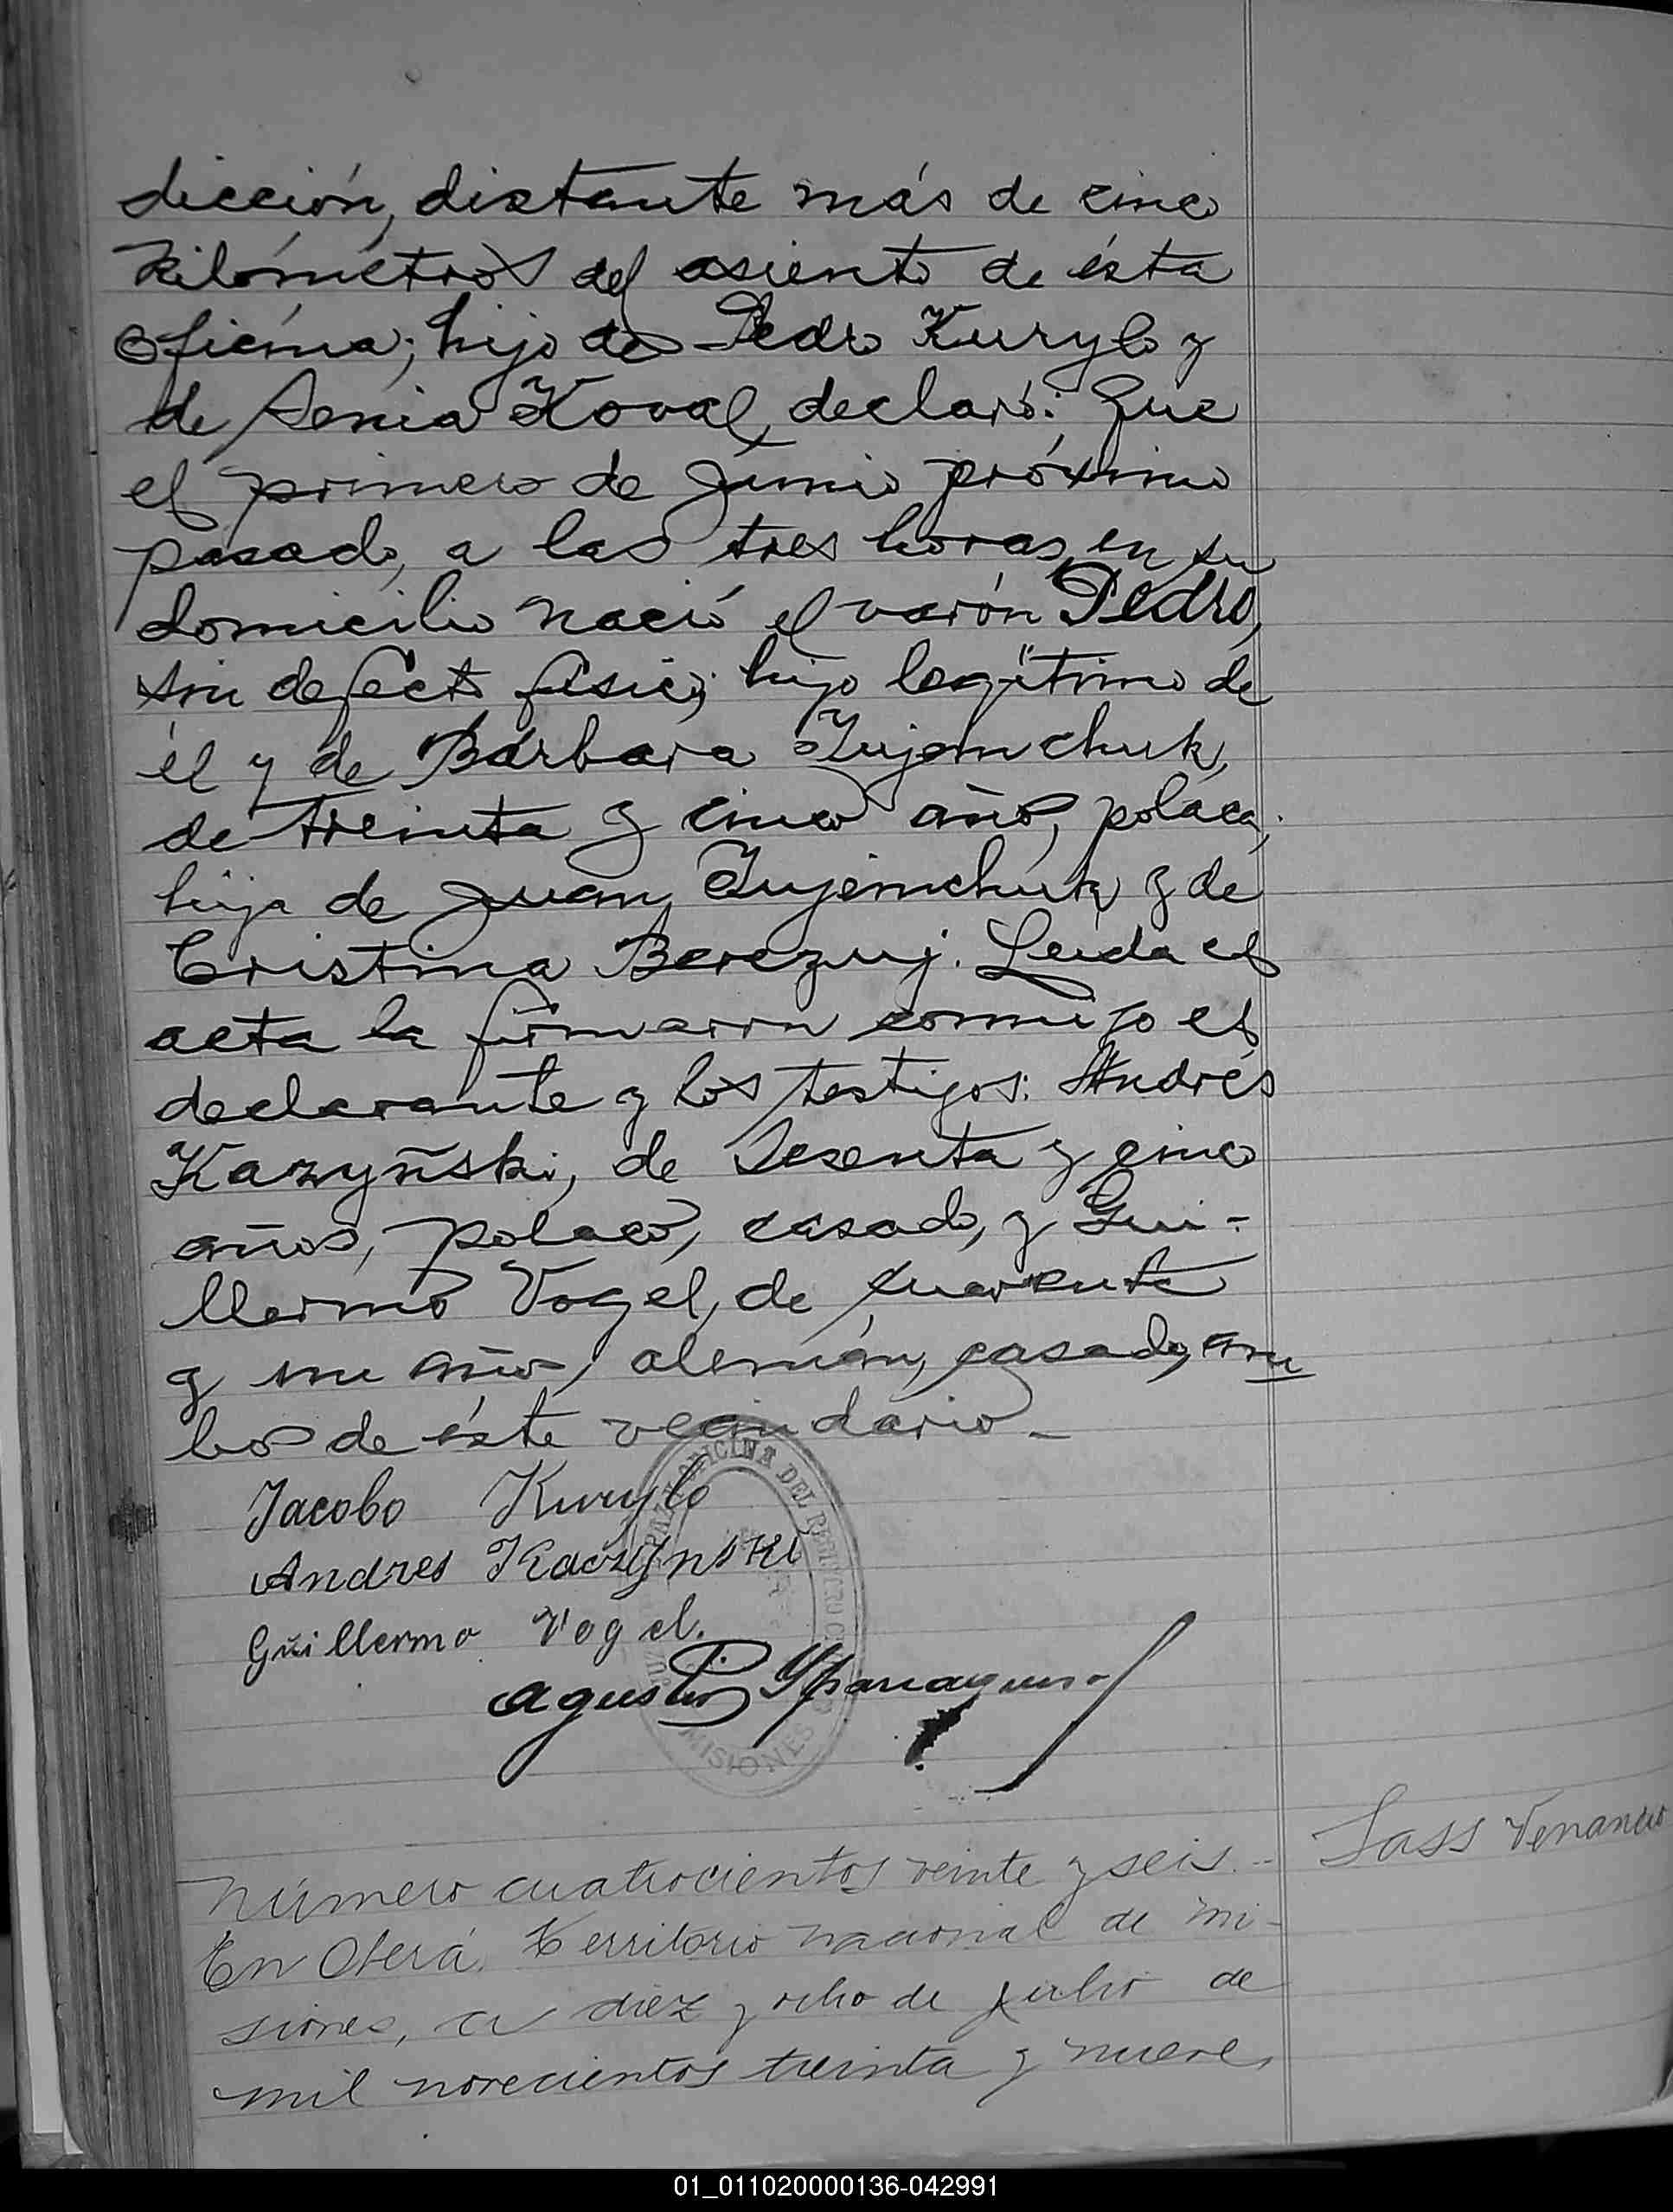 dicción, distante más de cinco
kilómetros del asiento de ésta
oficina; hijo de Pedro Kurylo y
de Senia Koval, declaró: Que
el primero de Junio próximo
pasado, a las tres horas, en su
domicilio nació el varón Pedro,
sin defecto físico; hijo legítimo de
él y de Bárbara Tujemchuk,
de treinta y cinco años, polaca;
hija de Juan Tujemchuk y de
Cristina Berezuj. Leida el
acta la firmaron conmigo el
declarante y los testigos: Andrés
Kazyñski, de sesenta y cinco
años, polaco, casado, y Gui-
llermo Vogel, de cuarenta
y un años, alemán, casado, am
bos de éste vecindario_
Jacobo Kurylo
Andres Kaczynski
Guillermo Vogel.
OFICINA DEL REGISTRO
Agustin Yparraguirre
MISIONES
Número cuatrocientos veinte y seis.- Sass Venancio
En Oberá, Territorio nacional de Mi-
siones, a diez y ocho de julio de
mil novecientos treinta y nueve,
01_011020000136-042991